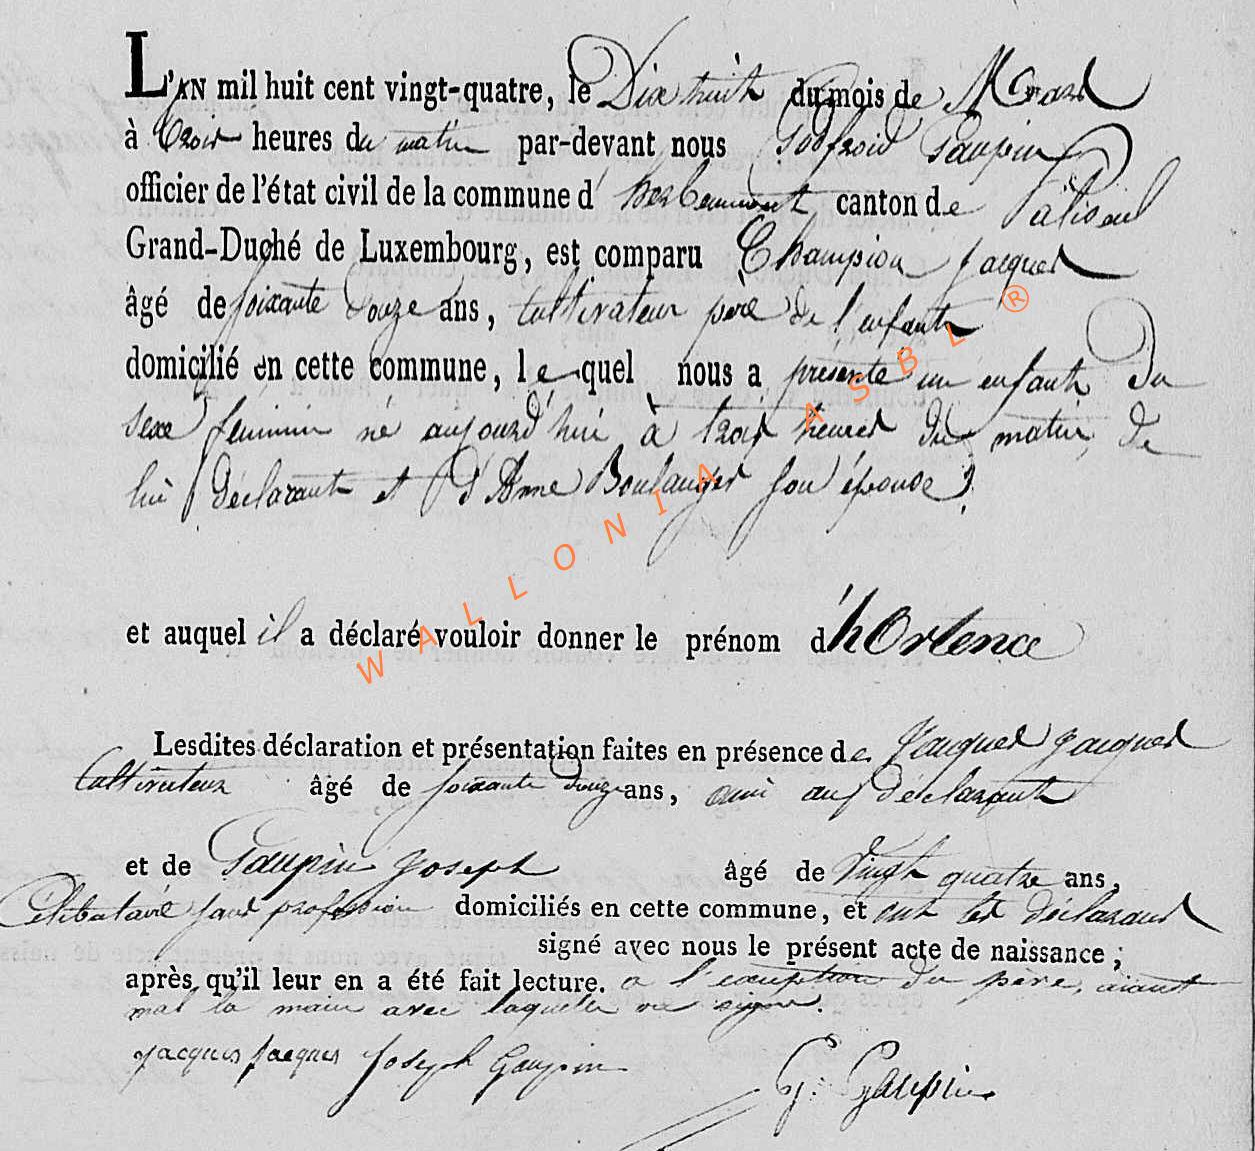 L'AN mil huit cent vingt-quatre, le Dix huit du mois de Mars
à trois heures du matin par-devant nous Godfroid Gaupin
officier de l'état civil de la commune d'herbeumont canton de Paliseul
Grand-Duché de Luxembourg, est comparu Champion jacques
âgé de soixante douze ans, Cultivateur père de l'enfant
domicilié en cette commune, lequel nous a présenté un enfant du
sexe feminin né aujourd'hui à trois heures du matin, de
lui déclarant et d'Anne Boulanger son épouse
et auquel il a déclaré vouloir donner le prénom d'hOrtence
Lesdites déclaration et présentation faites en présence de Jacques Jacques
Cultivateur âgé de soixante douze ans, ami au déclarant
et de Gaupin joseph âgé de Vingt quatre ans,
Célibataire sans profession domiciliés en cette commune, et ont les déclarans
signé avec nous le présent acte de naissance ;
après qu'il leur en a été fait lecture. a l'exception du père, aiant
mal la main avec laquelle il signe.
jacques jacques joseph Gaupin
G: Gaupin
WALLONIA ASBL ®